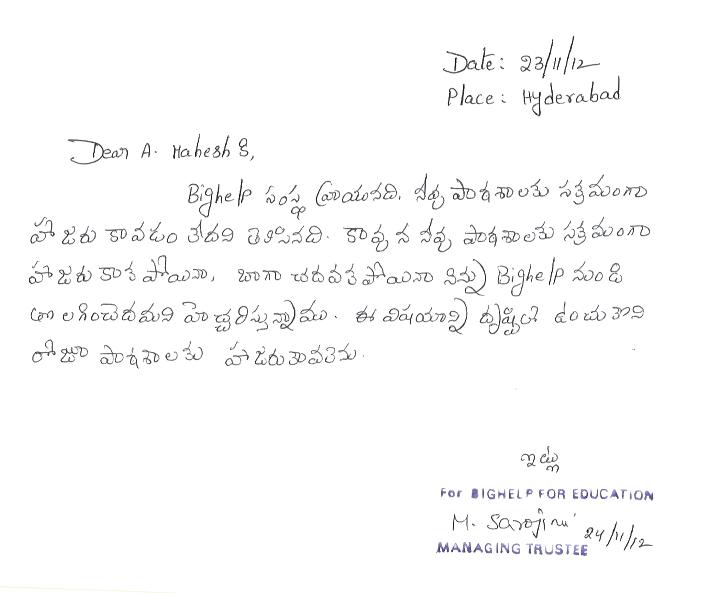 Date: 23/11/12
Place: Hyderabad
Dear A. Mahesh కి,
Bighelp సంస్థ వ్రాయునది. నీవు పాఠశాలకు సక్రమంగా
హాజరు కావడం లేదని తెలిసినది. కావున నీవు పాఠశాలకు సక్రమంగా
హాజరు కాక పోయినా, బాగా చదవక పోయినా నిన్ను Bighelp నుండి
తొలగించెదమని హెచ్చరిస్తున్నాము. ఈ విషయాన్ని దృష్టిలో ఉంచుకొని
రోజూ పాఠశాలకు హాజరుకావలెను.
ఇట్లు
For BIGHELP FOR EDUCATION
M. Sarojini 24/11/12
MANAGING TRUSTEE